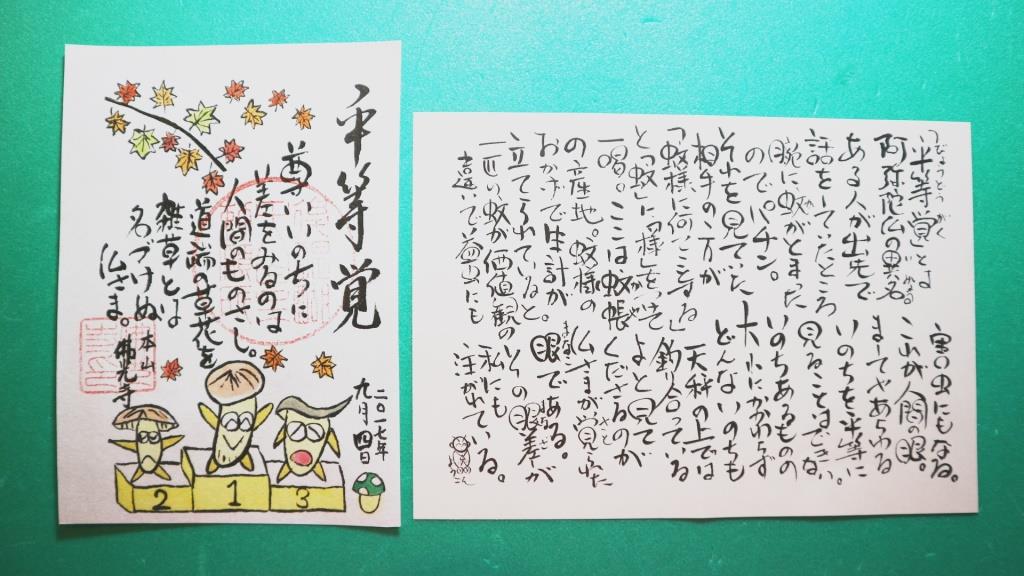 平等覚
尊いいのちに
差をみるのは
人間のものさし。
道端の草花を
雑草とは
名づけぬ
仏さま。
本山
佛光寺
二〇一七年
九月四日
2
1
3
「平等覚」とは
阿弥陀仏の異名
ある人が出先で
話をしていたところ
腕に蚊がとまった
ので。パチン。
それを見ていた
相手の方が
と「蚊」に「様」をつけて
一喝。ここは蚊帳
の産地。蚊様の
おかげで生計が
立てられていると
一匹の蚊が価値観の
違いで益虫にも
害の虫にもなる。
これが人間の眼。
ましてやあらゆる
いのちを平等に
見ることはできない。
いのちあるものの
大小にかかわらず
どんないのちも
天秤の上では
釣り合っている
よと見て
くださるのが
仏さまが覚られた
眼である。
その眼差が
私にも
注がれている。